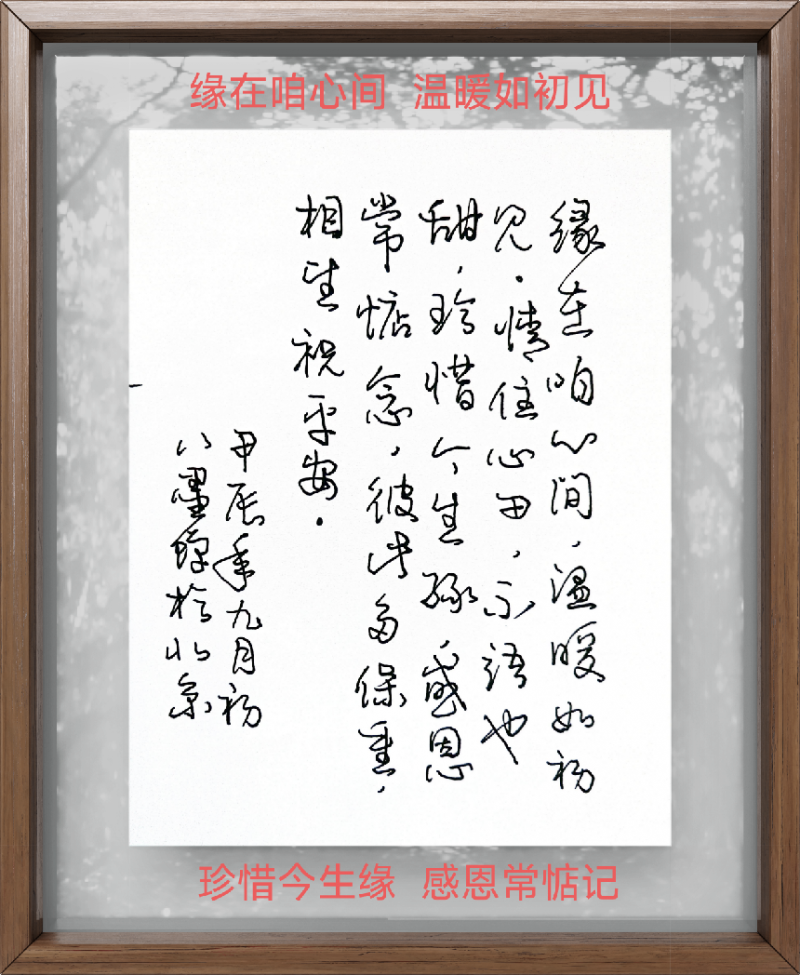 缘在咱心间 温暖如初见
缘在咱心间，温暖如初
见。情住心田，不语也
甜，珍惜今生缘，感恩
常惦念，彼此多保重，
相望祝平安。
甲辰年九月初
八墨醇于北京
珍惜今生缘 感恩常惦记